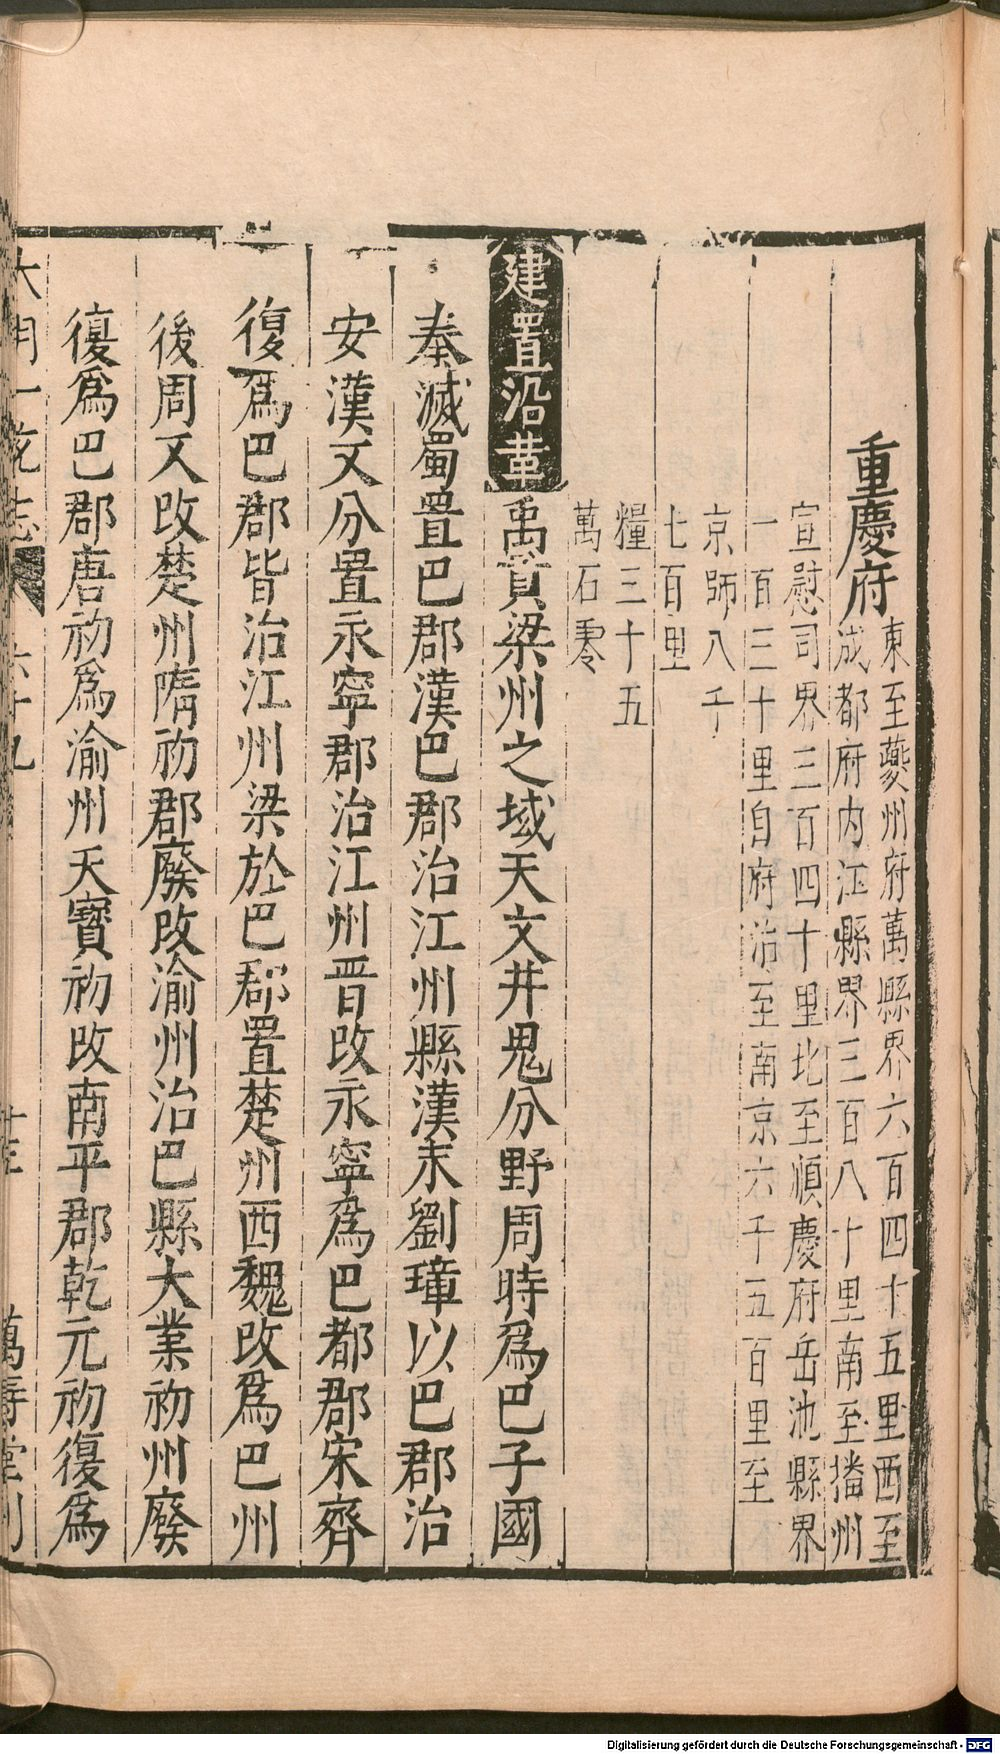 重慶府
東至夔州府萬縣界六百四十五里西至
成都府內江縣界三百八十里南至播州
宣慰司界三百四十里北至順慶府岳池縣界
一百三十里自府治至南京六千五百里至
京師八千
七百里
糧三十五
萬石零
建置沿革
禹貢梁州之域天文井鬼分野周時爲巴子國
秦滅蜀置巴郡漢巴郡治江州縣漢末劉璋以巴郡治
安漢又分置永寧郡治江州晉改永寧爲巴都郡宋齊
復爲巴郡皆治江州梁於巴郡置楚州西魏改爲巴州
後周又改楚州隋初郡廢改渝州治巴縣大業初州廢
復爲巴郡唐初爲渝州天寶初改南平郡乾元初復爲
大明一統志 六十九 萬壽堂刊
Digitalisierung gefördert durch die Deutsche Forschungsgemeinschaft - DFG